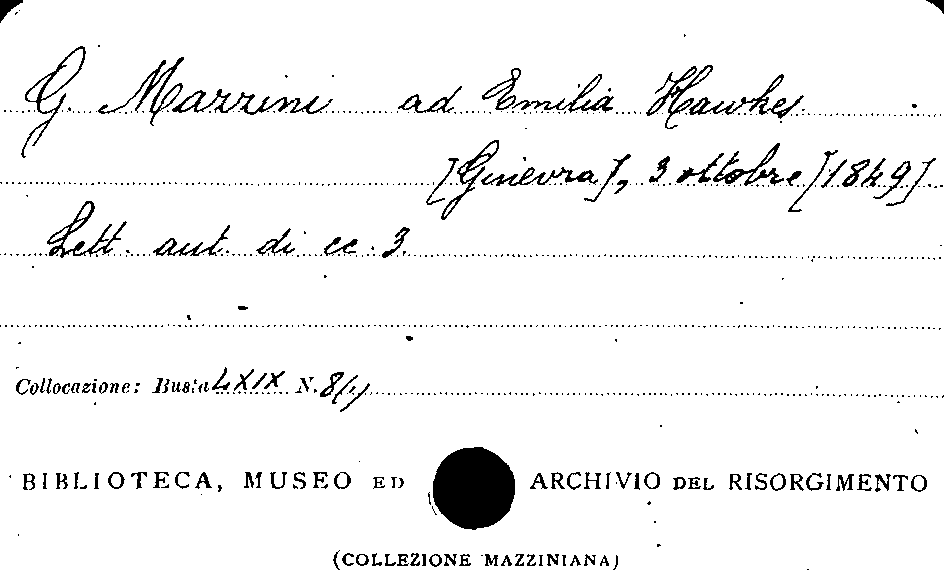 G. Mazzini ad Emilia Hawkes.
[Ginevra], 3 ottobre [1849].
Lett. aut. di cc. 3.
Collocazione: Busta LXIX N. 8(1)
BIBLIOTECA, MUSEO ED ARCHIVIO DEL RISORGIMENTO
(COLLEZIONE MAZZINIANA)